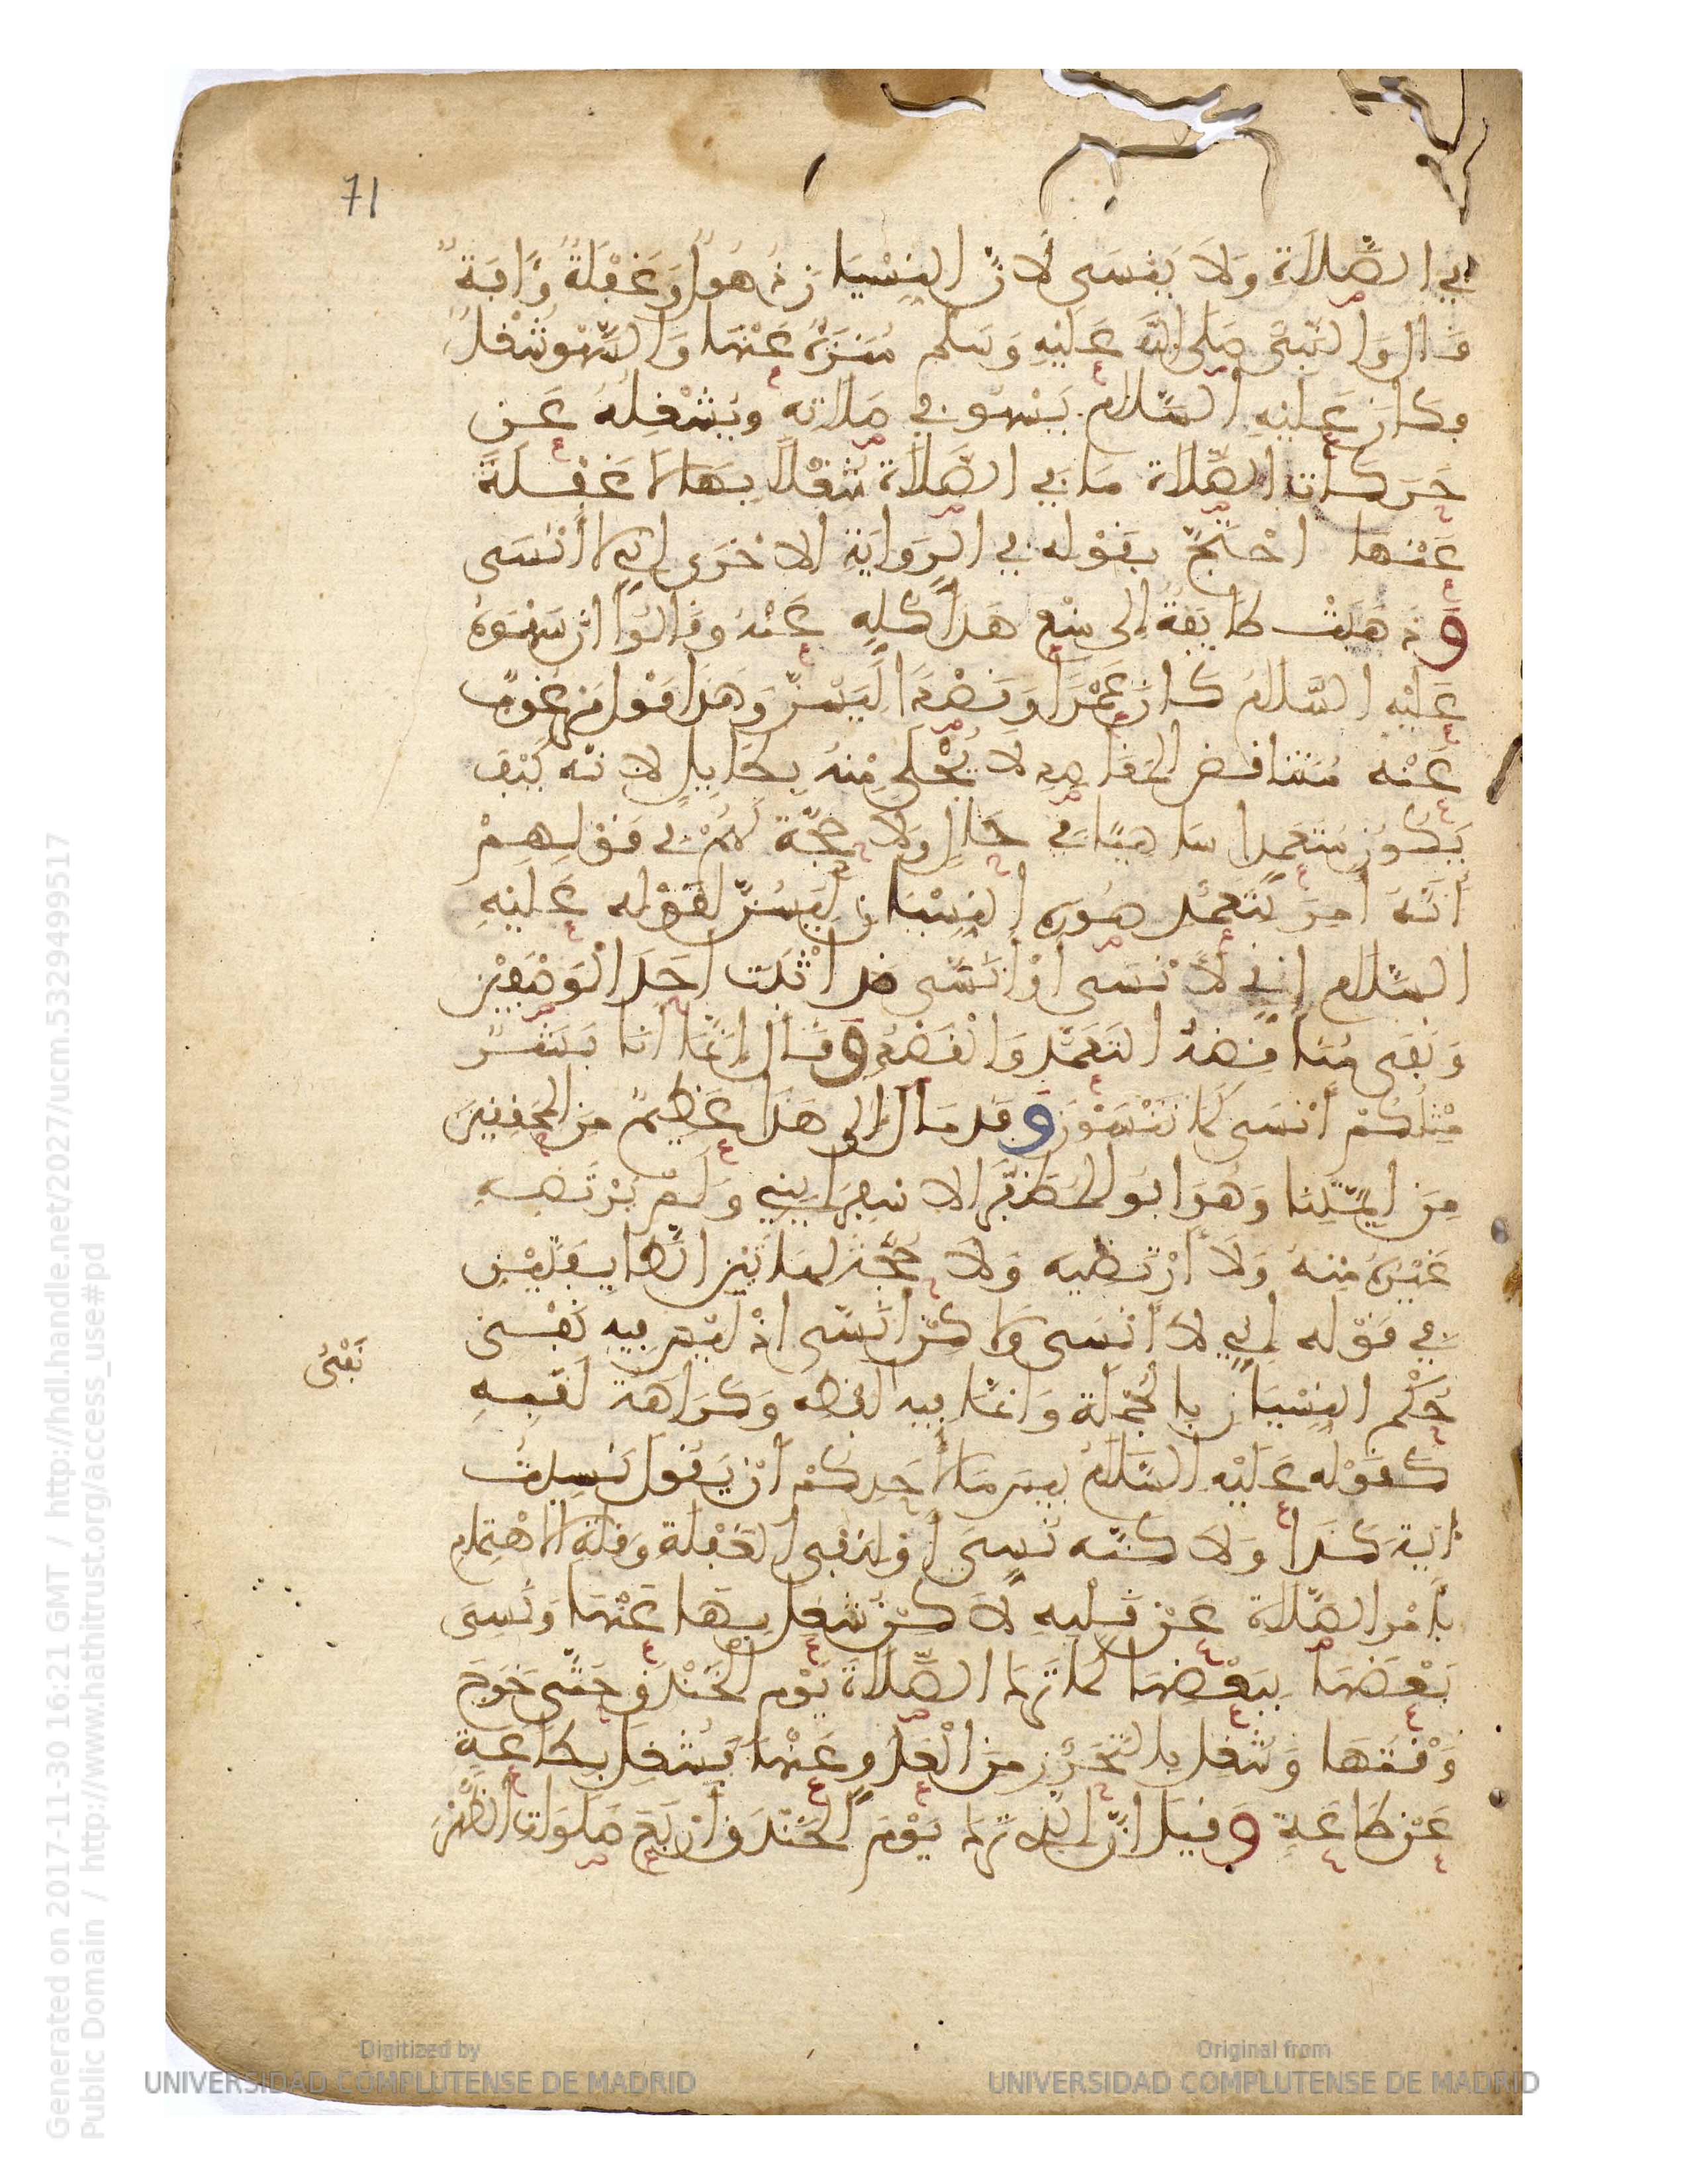 71
في الصَّلَاةِ وَلَا يَنْسَى لِأَنَّ النِّسْيَانَ ذُهُولٌ وَغَفْلَةٌ وَءَافَةٌ
قَالَ وَالنَّبِيُّ صَلَى اللهُ عَلَيْهِ وَسَلَّم مُنَزَّهٌ عَنْهَا وَالسَّهْوُ شُغْلٌ
فكَانَ عَلَيْهِ السَّلَامُ يَسْهُو في صَلَاتِهِ ويَشْغِلُهُ عَن
حَرَكَاتِ الصَّلَاةِ مَا في الصَّلَاةِ شُغْلًا بِهَا لَا غَفْلَةً
عَنْهَا احْتَجَّ بقَوْلِه في الرِّوَايَةِ الاُخْرَى إنِّي لا أَنْسَى
وَذَهَبَتْ طَايفَةٌ إلى مَنْعِ هَذَا كُلِّهِ عَنْهُ وقَالُوا ان سَهْوَهُ
عَلَيْهِ السَّلَامُ كَانَ عَمْدًا وَقَصْدًا لِيَسُنَّ وَهَذَا قَوْل مَرْغُوبٌ
عَنْه مُتَنَاقِض المَقَاصِدِ لَا يُحْلَى مِنْهُ بِطَايِلٍ لِانَّه كَيْفَ
يَكُونُ مُتَعَمِّدا سَاهِيًا في حَالٍ وَلَا حُجَّةَ لَهُمْ في قَوْلِهِمْ
أَنَّهُ أُمِرَ بتَعَمُّدِ صُورَةِ النِّسْيَانِ لِيَسُنَّ لقَوْلِه عَلَيْهِ
السَّلَام إنِّي لَأَنْسَى أَوْ أُنَسَّى قد أَثْبَتَ أَحَدَ الْوَصْفَيْنِ
وَنَفَى مُنَاقَضَةَ التَعَمُّدِ وَالْقَصْدِ وَقَالَ إِنَّمَا أنَا بَشَرٌ
مِثْلُكُمْ أَنْسَى كَمَا تَنْسَوْنَ وَقد مَالَ إلى هَذَا عَظِيمٌ مِنَ المحَقِقِينَ
مِنَ ايِمَّتِنَا وَهُوَ ابُو المُظَفَّرِ الاسفِرَايِينِي وَلَمْ يَرْتَضِهِ
غَيْرُهُ مِنْهُ وَلَا أَرْتَضِيه وَلَا حُجَّة لهَاتَيْنِ الطَّايفَتَيْنِ
في قَوْلِه إنِّي لَا أَنْسَى وَلاكِنْ أُنَسَّى اذْ لَيْسَ فِيهِ نَفْيُ
حُكْمِ النِّسْيَانِ بِالجُمْلَة وَانَّمَا فيهِ لَفْظِه وَكَرَاهَةُ لَقَبِهِ
نَفْيُ
كَقَوْلِه عَلَيْهِ السَّلَامُ بِيسَ مَا لِأَحَدِكُمْ أَنْ يَقُولَ نَسِيتُ
ءَايَةَ كَذَا وَلَاكِنَّه نُسِيَ أَوْ لنَفْيِ الغَفْلَةِ وَقِلَّةِ الاهْتِمَامِ
بأَمْرِ الصَّلَاة عَنْ قَلْبِهِ لَاكِنْ شُغِلَ بِهَا عَنْهَا وَنَسِيَ
بَعْضَهَا بِبَعْضِهَا كَمَا تَرَكَ الصَّلَاةَ يَوْم الخَنْدَقِ حَتَّى خَرَجَ
وَقْتُهَا وَشُغِلَ بِالتَّحَرُّزِ مِنَ الْعَدُوِّ عَنْهَا فَشُغِلَ بِطَاعَةٍ
عَنْ طَاعَةٍ وَقيلَ انَّ الذي تَرَكَ يَوْمَ الخَنْدَقِ أَرْبَعَ صَلَوَاتِ الظُّهْرَ